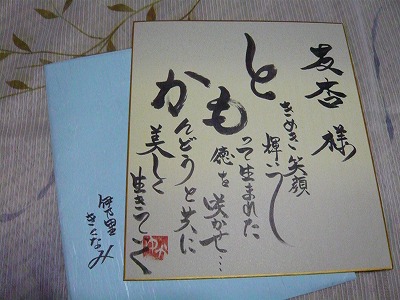 友杏 様
と
きめき笑顔
輝
も
って生まれた
徳を咲かせ…
か
んどうと共に
美しく
生きていく
きくなみ